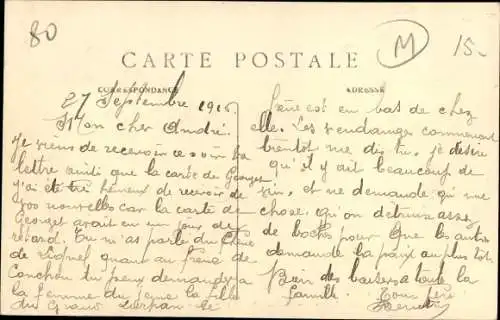 80
M
15-
CARTE POSTALE
CORRESPONDANCE
ADRESSE
27 Septembre 1915
Mon cher André.
Je viens de recevoir ce soir ta
lettre ainsi que la carte de Georges
j'ai été très heureux de recevoir de
vos nouvelles car la carte de
Georges avait en un jour de
retard. Tu m'as parlé du Chêne
de quant au frère de
Conchon tu peux demander a
la femme du la fille
du Grand
frère est en bas de chez
elle. Les vendanges commencent
bientôt me dis tu, je désire
qu'il y ait beaucoup de
vin, et ne demande qu'une
chose, qu'on détruise assez
de boches pour que les autres
demande la paix au plus tôt
Bien des baisers a toute la
famille. Ton frère